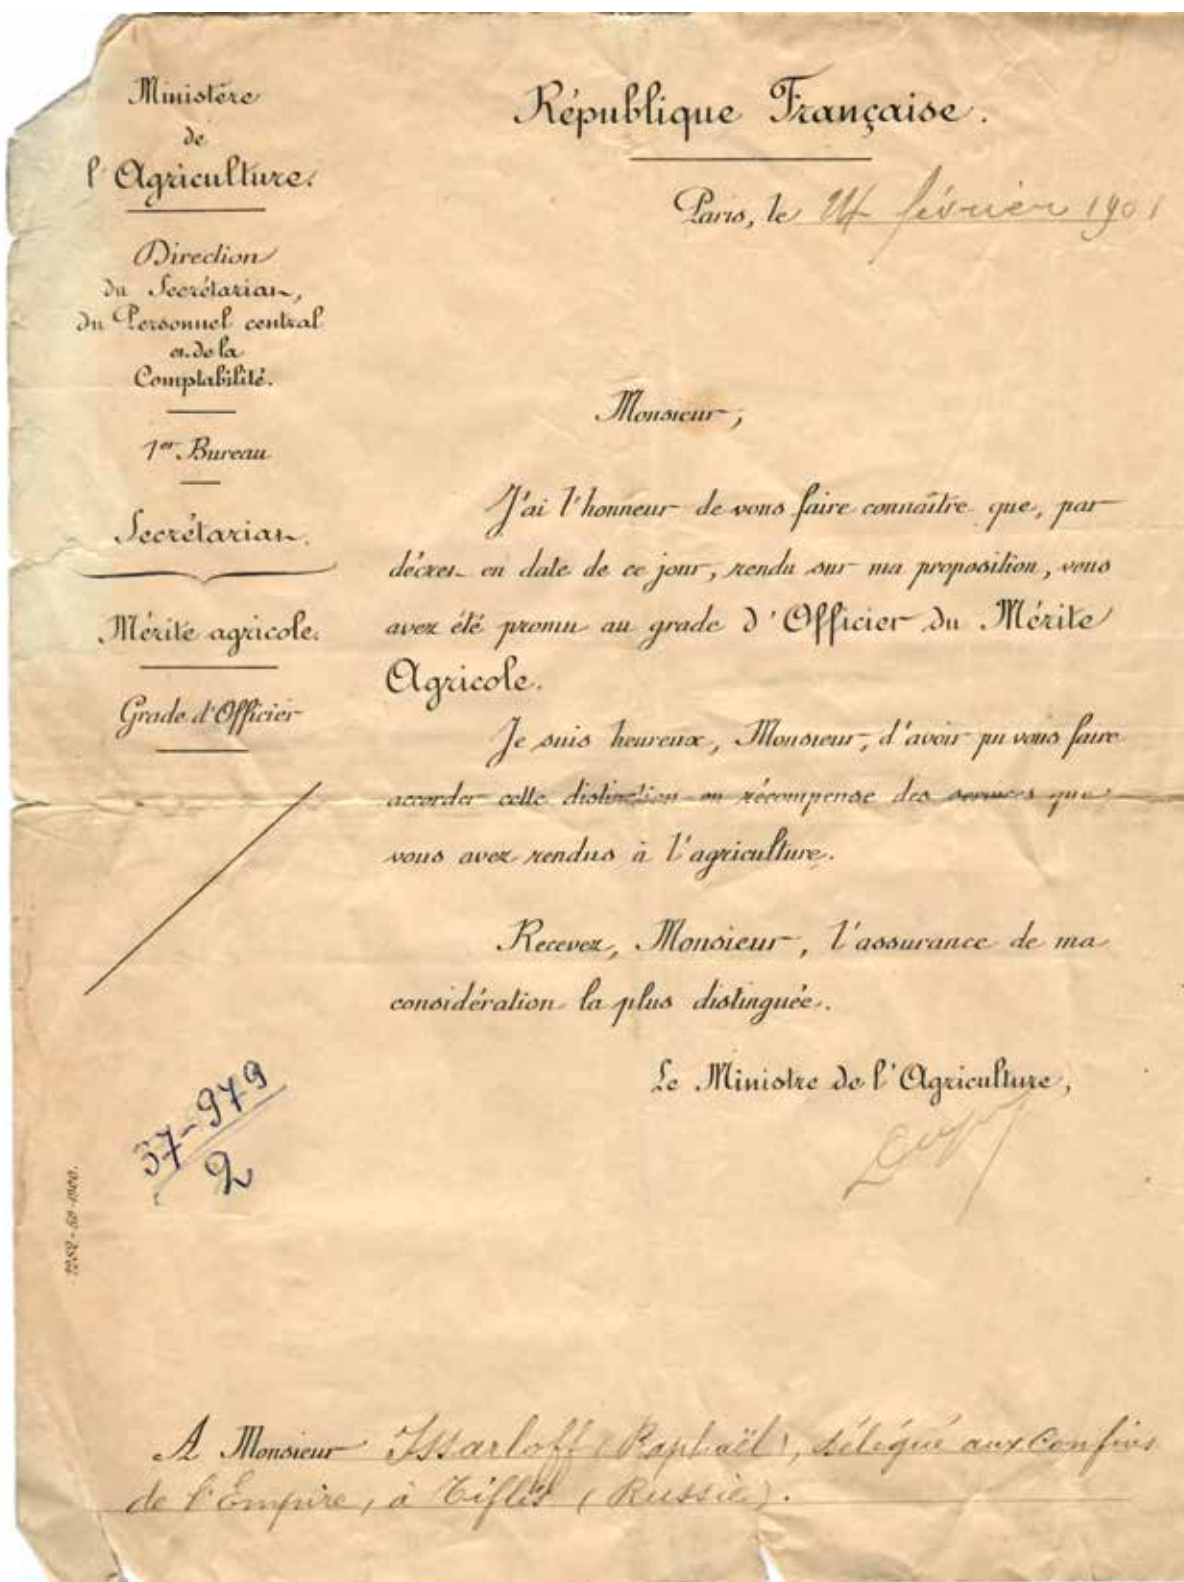 Ministère
de
l'Agriculture.
Direction
du Secrétariat,
du Personnel central
et de la
Comptabilité.
1er Bureau
Secrétariat.
Mérite agricole.
Grade d'Officier
République Française.
Paris, le février 1901
Monsieur,
J'ai l'honneur de vous faire connaître que, par
décret en date de ce jour, rendu sur ma proposition, vous
avez été promu au grade d'Officier du Mérite
Agricole.
Je suis heureux, Monsieur, d'avoir pu vous faire
accorder cette distinction en récompense des services que
vous avez rendus à l'agriculture.
Recevez, Monsieur, l'assurance de ma
considération la plus distinguée.
Le Ministre de l'Agriculture,
37-979
2
A Monsieur Issarloff (Raphaël), délégué aux Confins
de l'Empire, à Tiflis (Russie).